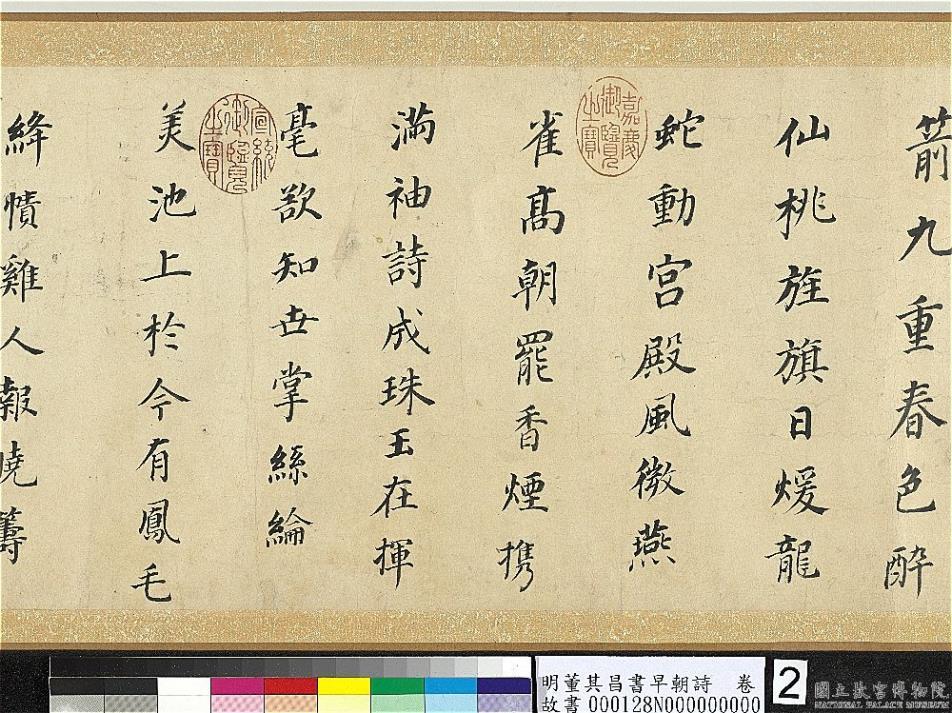 箭九重春色醉
仙桃旌旗日煖龍
蛇動宮殿風微燕
雀高朝罷香煙携
滿袖詩成珠玉在揮
毫欲知世掌絲綸
美池上於今有鳳毛
絳幘雞人報曉籌
嘉慶御覽之寶
宣統御覽之寶
明董其昌書早朝詩 卷
故書000128N000000000
2
國立故宮博物院
NATIONAL PALACE MUSEUM